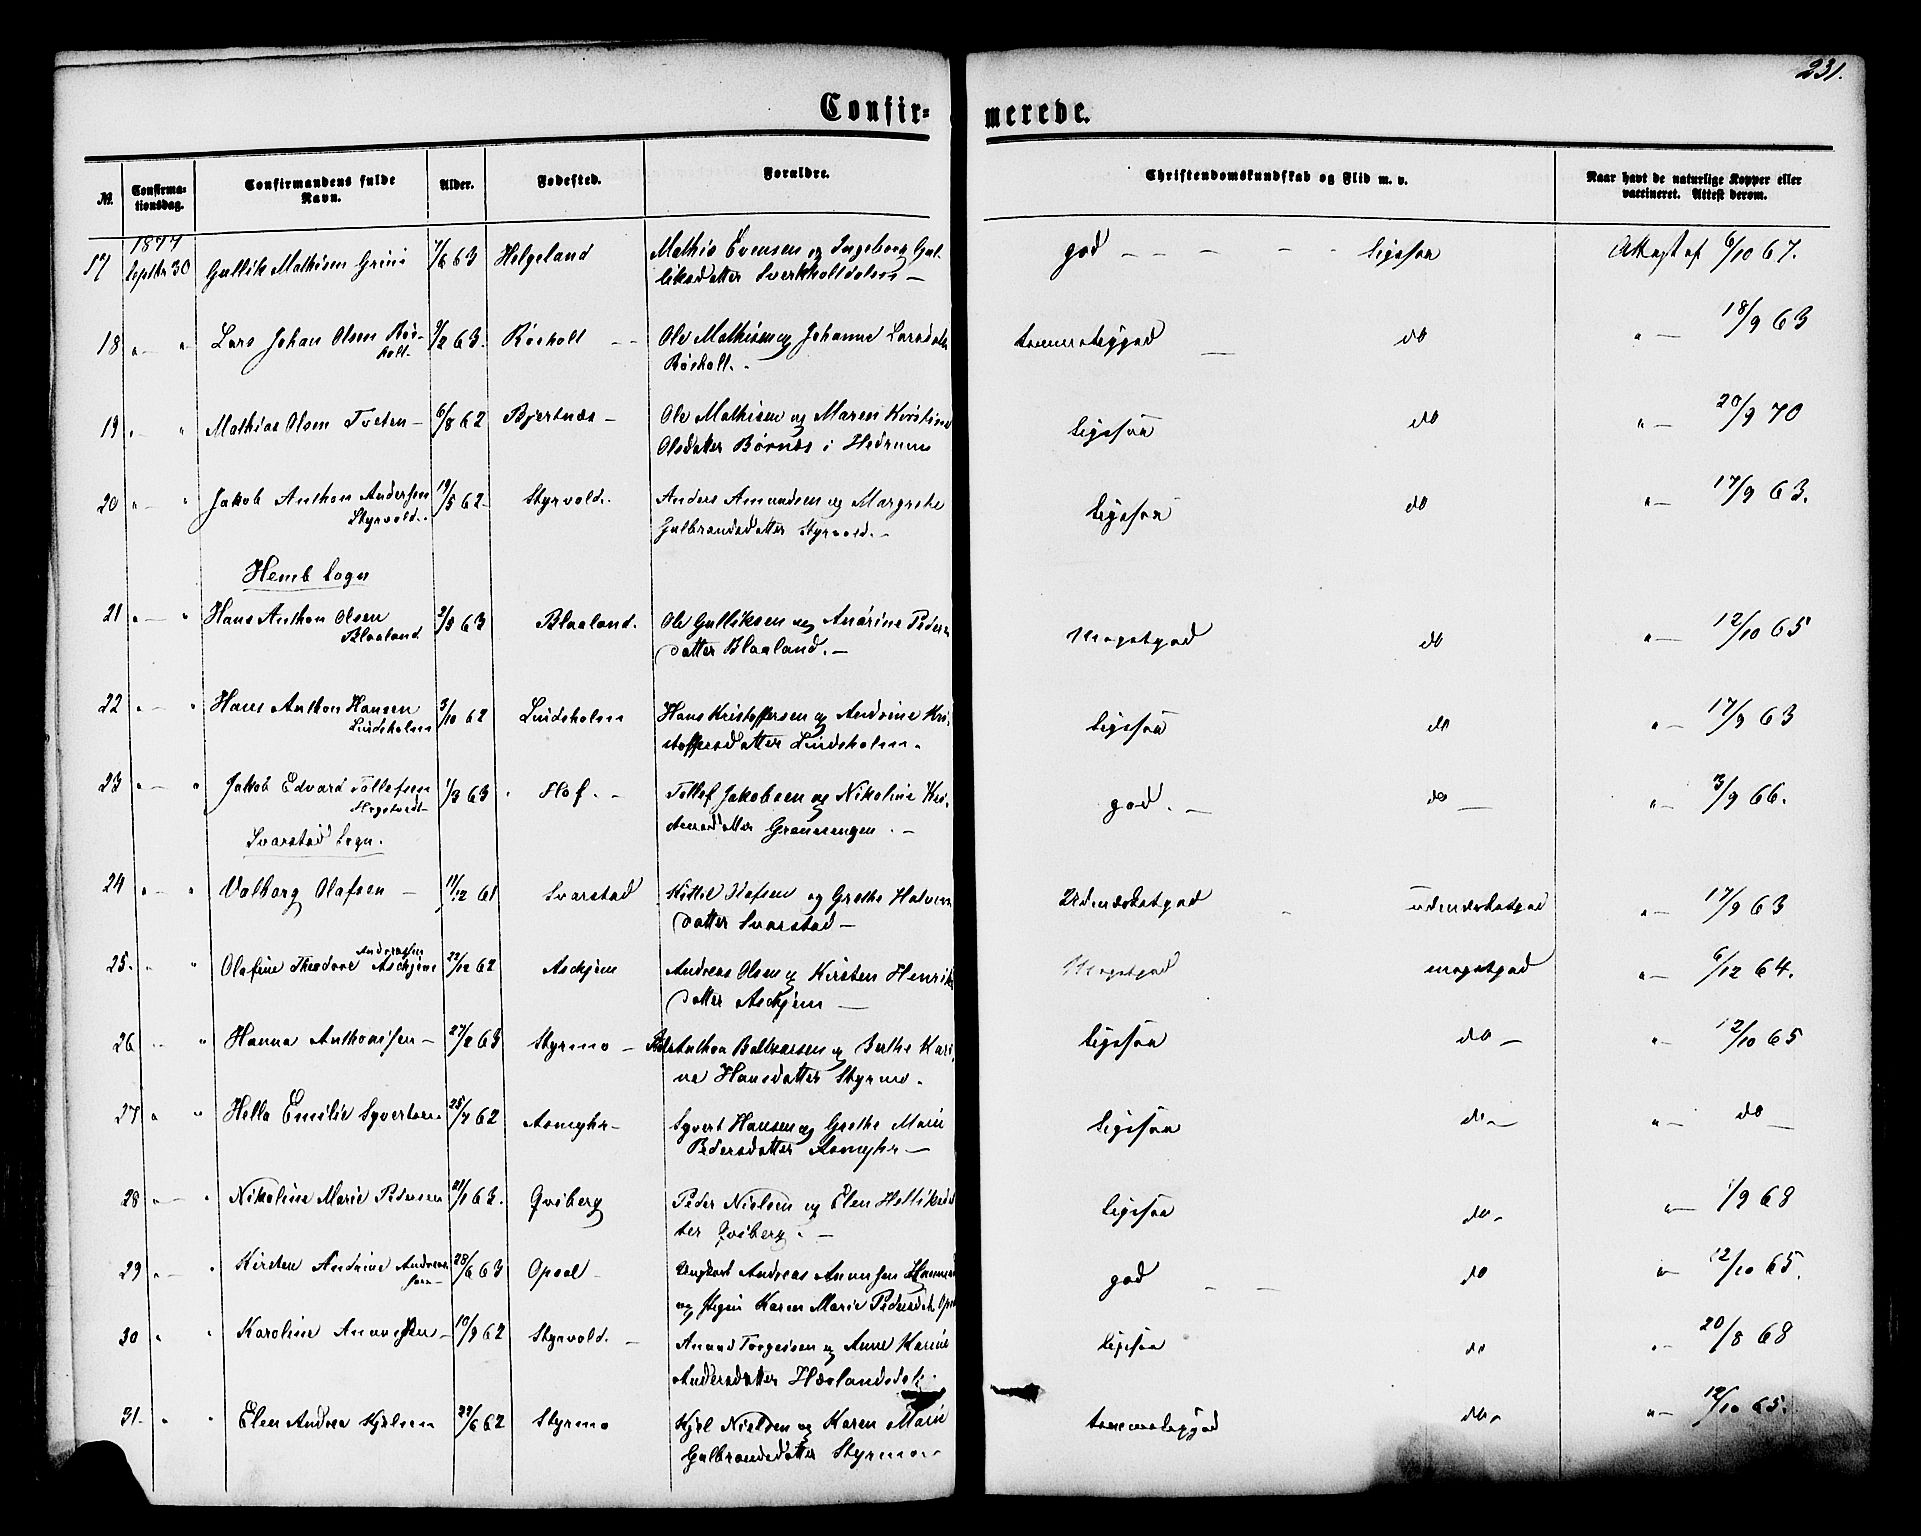 231.
Confir= merede.
No. Confirma-tionsdag. Confirmandens fulde Navn. Alder. Fødested. Forældre. Christendomskundskab og Flid m. v. Naar havt de naturlige Kopper eller vaccineret. Attest derom.
1877
17 Septbr 30 Gullik Mathisen Grini 7/6 63 Helgeland Mathis Evensen og Ingeborg Gul-
liksdatter Sverkholtdalen — god — — — — ligesaa Attest af 6/10 67.
18 " — " Lars Johan Olsen Røs-
holt. 9/2 63. Røsholt — — Ole Mathisen og Johanne Larsdatr
Røsholt. — temmeliggod — do " — 18/9 63
19 " — " Mathias Olsen Tveten — 6/8 62 Bjertnæs — Ole Mathisen og Maren Kirstine
Olsdatter Børnæs i Hedrum ligesaa do " — 20/9 70
20 " — " Jakob Anthon Andersen
Styrvold. 19/5 62. Styrvold. Anders Amundsen og Margrethe
Gulbrandsdatter Styrvold. — ligesaa do " — 17/9 63.
Hemb Sogn
21 " — " Hans Anthon Olsen
Blaaland 2/5 63 Blaaland. Ole Gulliksen og Anarine Peders
datter Blaaland. — Megetgod do " — 12/10 65
22 " — " Hans Anthon Hansen
Lindsholm 3/10 62 Lindsholm Hans Kristoffersen og Andrine Kri-
stoffersdatter Lindsholm. ligesaa do " — 17/9 63
23 " — " Jakob Edvard Tollefsen
1/3 63 Flof. — Tollef Jakobsen og Nikoline Kri-
stensdatter Grønsengen. — god. — do — " — 3/9 66.
Svarstad Sogn.
24 " — " Valborg Olafsen — 17/12 61 Svarstad Kittil Olafsen og Grethe Halvors
datter Svarstad — Udmærketgod udmærketgod " — 17/9 63
25. " " Olafine Theodore Andreassen
Askjem 22/12 62 Askjem Andreas Olsen og Kirsten Henriks
datter Askjem — Megetgod megetgod " — 6/12 64.
26 " " Hanna Anthonisen — 27/2 63 Styrmo — Anthon Baltzersen og Berthe Kari-
ne Hansdatter Styrmo. ligesaa do — " — 12/10 65
27 " " Hella Emilie Syvertsen 25/7 62 Asmyhr — Syvert Hansen og Grethe Marie
Pedersdatter Asmyhr — ligesaa do — " — do —
28 " — " Nikoline Marie Pedersen 21/1 63. Qvisberg Peder Nielsen og Elen Helliksdat
ter Qvisberg. — ligesaa do - " — 1/9 68
29 " — " Kirsten Andrine Andreas-
sen — 28/6 63 Opsal — Ungkarl Andreas Anunsen
og Pigen Karen Marie Pedersdat. Opsal god — — do " — 12/10 65.
30 " " Karoline Anunsen — 10/9 62 Styrvold. — Anund Torgersen og Anne Karine
Andersdatter ligesaa do " — 20/8 68
31. " " Elen Andrea Kjelsen 29/6 62 Styrmo Kjel Nielsen og Karen Marie
Gulbrandsdatter Styrmo — temmeliggod do - " — 12/10 65.